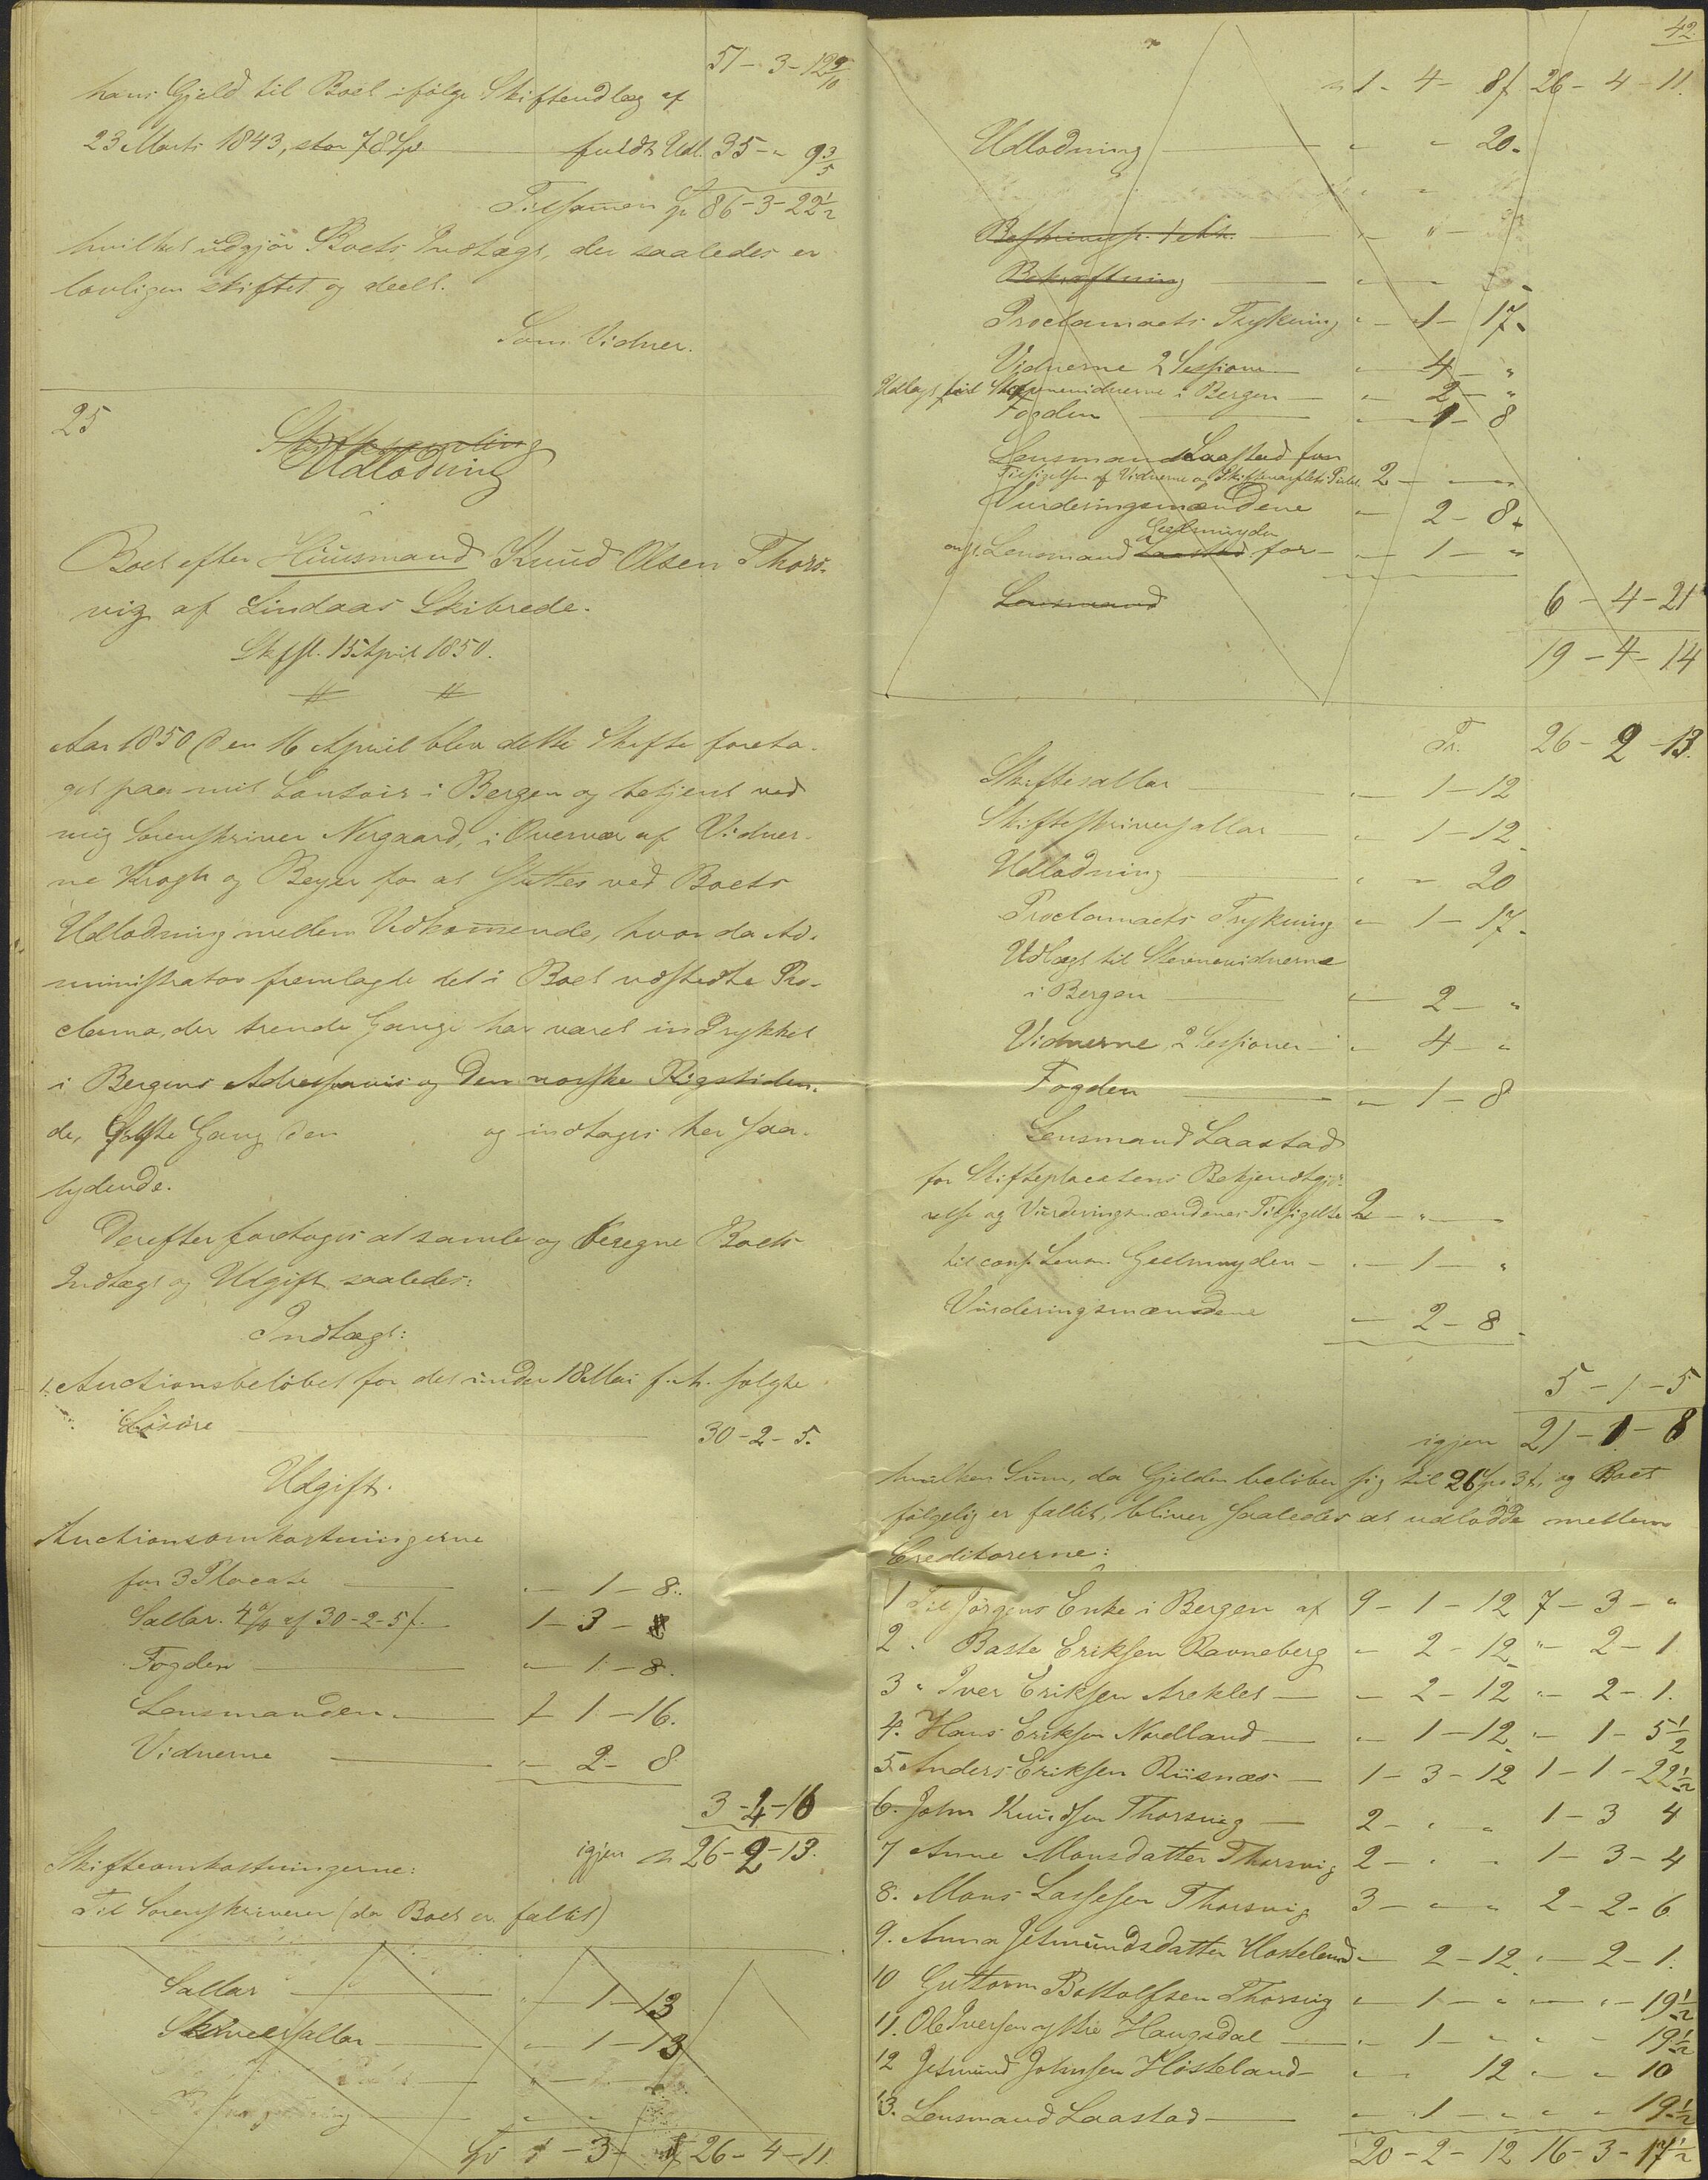 51 - 3 - 12 9/10
hans Gjeld til Boet ifölge Skifteudlæg af
23 Marts 1843, stor 78 Spd. fuldt Udl. 35 - " 9 3/5
Tilsamen Sp 86 - 3 - 22 1/2
hvilket udgjör Boets Indtægt, der saaledes er
lovligen skiftet og deelt.
Som Vidner.
25
Udlodning
Boet efter Huusmand Knud Olsen Thors-
vig af Lindaas Skibrede.
Skfsl. 15 April 1850.
Aar 1850 den 16 April blev dette Skifte foreta-
get paa mit Contoir i Bergen og betjent ved
mig Sorenskriver Nergaard, i Overvær af Vidner-
ne Krogh og Beyer for at sluttes ved Boets
Udlodning mellem Vedkommende, hvor da Ad-
ministrator fremlagde det i Boet udstedte Pro-
clama, der trende Gange har været indrykket
i Bergens Adresseavis og Den norske Rigstiden-
de, sidste Gang den og indtages her saa-
lydende.
Derefter foretoges at samle og beregne Boets
Indtægt og Udgift saaledes:
Indtægt:
1. Auctionsbelöbet for det under 18 Mai f. A. solgte
Lösöre 30 - 2 - 5.
Udgift.
Auctionsomkostningerne
for 3 Placate " - 1 - 8.
Sallar. 4% af 30 - 2 - 5 s. 1 - 3 -
Fogden " - 1 - 8.
Lensmanden 1 - 16.
Vidnerne " - 2 - 8
3 - 4 - 16
igjen 26 - 2 - 13.
Skifteomkostningerne:
Til Sorenskriveren (da Boet er fallit)
Sallar " - 1 - 13
Skriversallar " - 1 - 13
26 - 4 - 11
42
1 - 4 - 8 s 26 - 4 - 11.
Udlodning " " 20.
Beskrivelsp. 1 Ark.
Bekræftning
Proclamaets Trykning " - 1 - 17.
Vidnerne 2 Sessioner " 4 - "
Udlagt til Stevnevidnerne i Bergen " 2 - "
Fogden " - 1 - 8
Lensmand Laastad for
Tilsigelsen af Vidnerne og Skiftesamlets Publ. 2 - " - "
Vurderingsmændene " - 2 - 8.
Geelmuyden
const. Lensmand Laastad for " - 1 - "
Lensmand
6 - 4 - 21
19 - 4 - 14
Tr. 26 - 2 - 13.
Skiftesallar " - 1 - 12
Skifteskriversallar " - 1 - 12.
Udlodning " - 20
Proclamaets Trykning " - 1 - 17.
Udlagt til Stevnevidnerne
i Bergen " 2 - "
Vidnerne 2 Sessioner " - 4 - "
Fogden " - 1 - 8
Lensmand Laastad
for Skifteplacatens Bekjendtgjö-
relse og Vurderingsmændenes Tilsigelse 2 - " -
til const. Lensm. Geelmuyden " - 1 - "
Vurderingsmændene " - 2 - 8.
5 - 1 - 5
igjen 21 - 1 - 8
hvilken Sum, da Gjelden belöber sig til 26 Sp. 3 t., og Boet
fölgelig er fallit, bliver saaledes at udlodde mellem
Creditorerne:
1 Til Jörgens Enke i Bergen af 9 - 1 - 12 7 - 3 - "
2 " Baste Eriksen Ravneberg " 2 - 12 " - 2 - 1
3 " Iver Eriksen Areklet " 2 - 12 " - 2 - 1.
4. Hans Eriksen Nordland " 1 - 12 " - 1 - 5 1/2
5. Anders Eriksen Riisnæs 1 - 3 - 12 1 - 1 - 22 1/2
6. John Knudsen Thorsvig 2 - " " 1 - 3 4
7 Anne Monsdatter Thorsvig 2 - " " 1 - 3 - 4
8. Mons Lassesen Thorsvig 3 - " " 2 - 2 - 6
9. Anna Jetmundsdatter Hosteland " 2 - 12 " - 2 - 1.
10 Guttorm Bottolfsen Thorsvig " 1 - " " - " - 19 1/2
11. Ole Iversen ystre Haugsdal " 1 - " " " 19 1/2
12 Jetmund Johnsen Hösteland " 12 " " 10
13. Lensmand Laastad " 1 - " " " 19 1/2
20 - 2 - 12 16 - 3 - 17 1/2